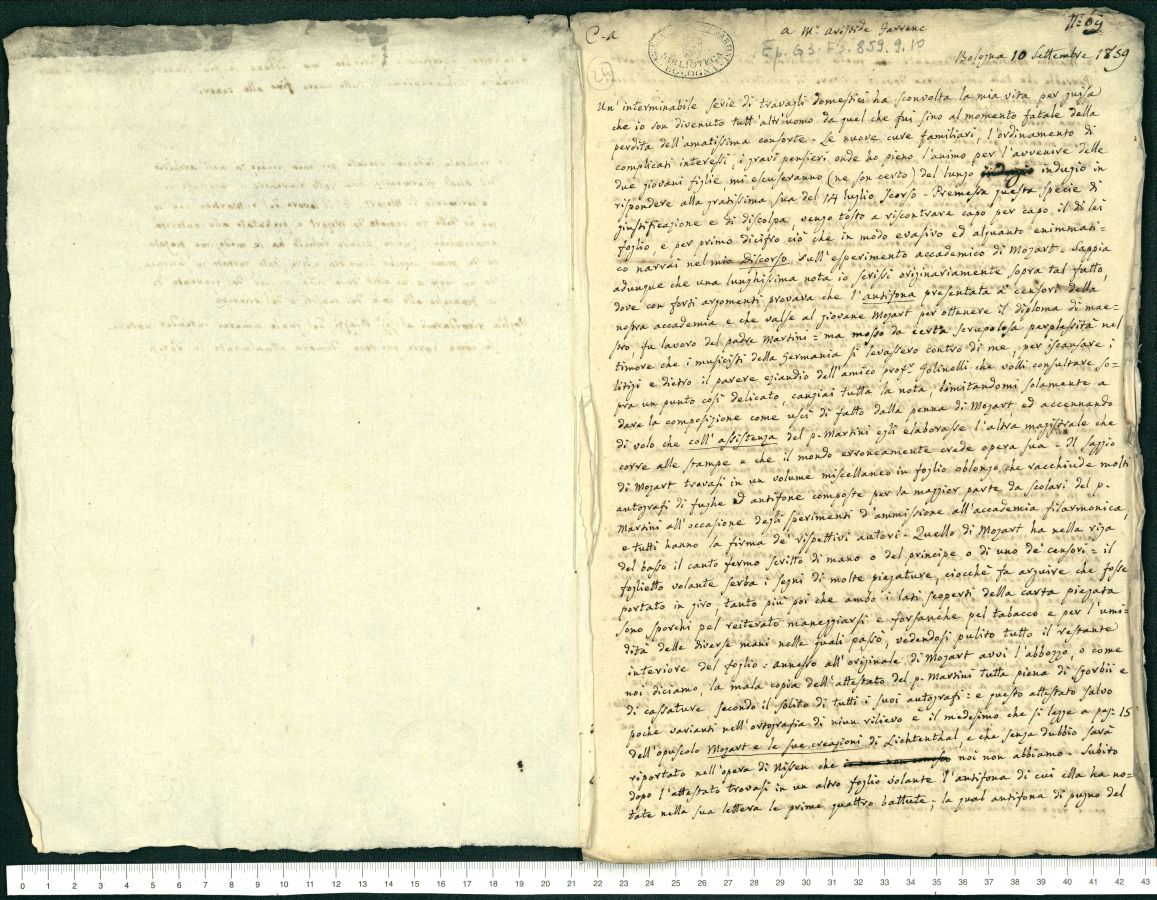 C-a
a Mr Aristide Farrenc
N: 69
Ep. G3. F3. 859.9.10
BIBLIOTECA
BOLOGNA
24
Bologna 10 Settembre 1859
Un'interminabile serie di travagli domestici ha sconvolta la mia vita per guisa
che io son divenuto tutt'altr'uomo da quel che fui sino al momento fatale della
perdita dell'amatissima consorte. Le nuove cure familiari, l'ordinamento di
complicati interessi, i gravi pensieri, onde ho pieno l'animo per l'avvenire delle
due giovani figlie mi escuseranno (ne son certo) del lungo indugio indugio in
rispondere alla gratissima sua del 14 luglio scorso. Premessa questa specie di
giustificazione e di discolpa, vengo tosto a riscontrare capo per capo il di lei
foglio e per primo dicifro ciò che in modo evasivo ed alquanto enimmati=
co narrai nel mio Discorso sull'esperimento accademico di Mozart. Sappia
adunque che una lunghissima nota io scrissi originariamente sopra tal fatto,
dove con forti argomenti provava che l'antifona presentata a' censori della
nostra accademia e che valse al giovane Mozart per ottenere il diploma di mae=
stro, fu lavoro del padre Martini = ma mosso da certa scrupolosa perplessità nel
timore che i musicisti della Germania si levassero contro di me, per iscansare i
litigi e dietro il parere eziandio dell'amico profr Golinelli che volli consultare so=
pra un punto così delicato, cangiai tutta la nota, limitandomi solamente a
dare la composizione come uscì di fatto dalla penna di Mozart, ed accennando
di volo che coll'assistenza del p. Martini egli elaborasse l'altra magistrale che
corre alle stampe e che il mondo erroneamente crede opera sua. Il saggio
di Mozart trovasi in un volume miscellaneo in foglio oblongo che racchiude molti
autografi di fughe ed antifone composte per la maggior parte da scolari del p.
Martini all'occasione degli sperimenti d'ammissione all'accademia filarmonica,
e tutti hanno la firma de' rispettivi autori. Quello di Mozart ha nella riga
del basso il canto fermo scritto di mano o del principe o di uno dei censori = il
foglietto volante serba i segni di molte piegature, ciocchè fa arguire che fosse
portato in giro, tanto più poi che ambo i lati scoperti della carta piegata
sono sporchi pel reiterato maneggiarsi e forsanche pel tabacco e per l'umi=
dità delle diverse mani nelle quali passò, vedendosi pulito tutto il restante
interiore del foglio: annesso all'originale di Mozart avvi l'abbozzo, o come
noi diciamo, la mala copia dell'attestato del p. Martini tutta piena di sgorbii e
di cassature secondo il solito di tutti i suoi autografi: e questo attestato salvo
poche varianti nell'ortografia di niun rilievo e il medesimo che si legge a pag: 15
dell'opuscolo Mozart e le sue creazioni di Lichtenthal, e che senza dubbio sarà
riportato nell'opera di Nissen che noi non abbiamo. Subito
dopo l'attestato trovasi in un altro foglio volante l'antifona di cui ella ha no=
tate nella sua lettera le prime quattro battute; la qual antifona di pugno del